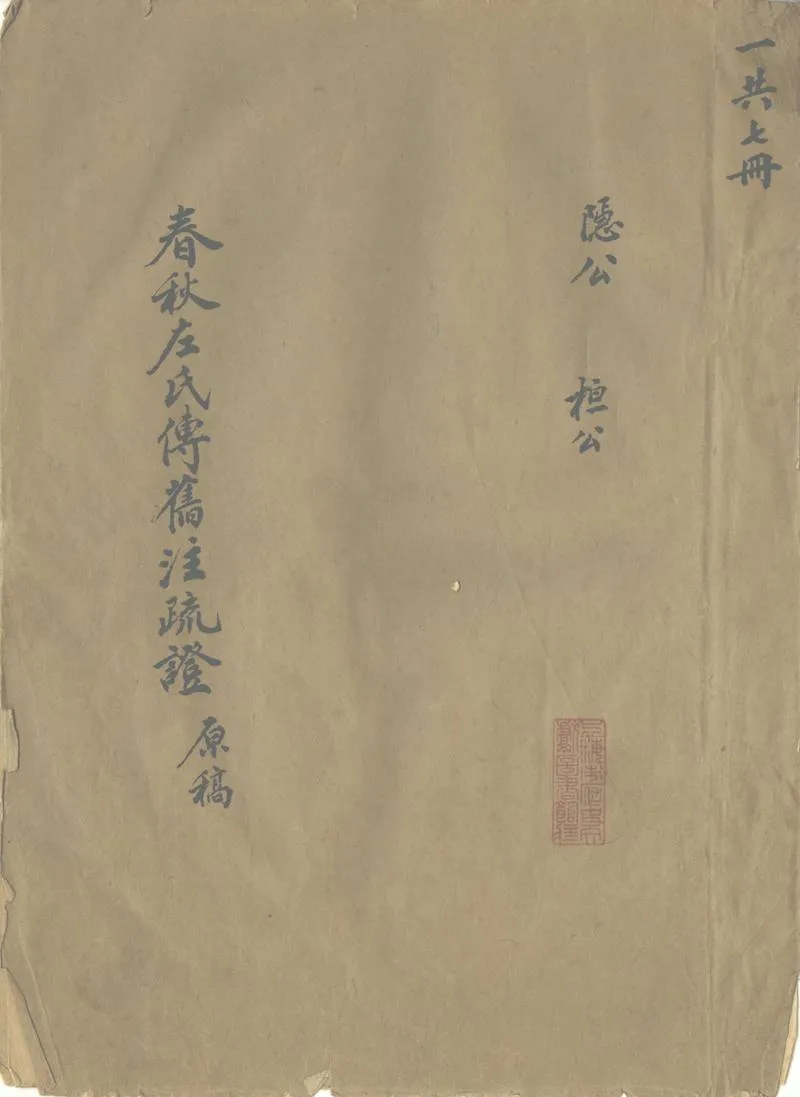 一共七冊
隱公 桓公
春秋左氏傳舊注疏證 原稿